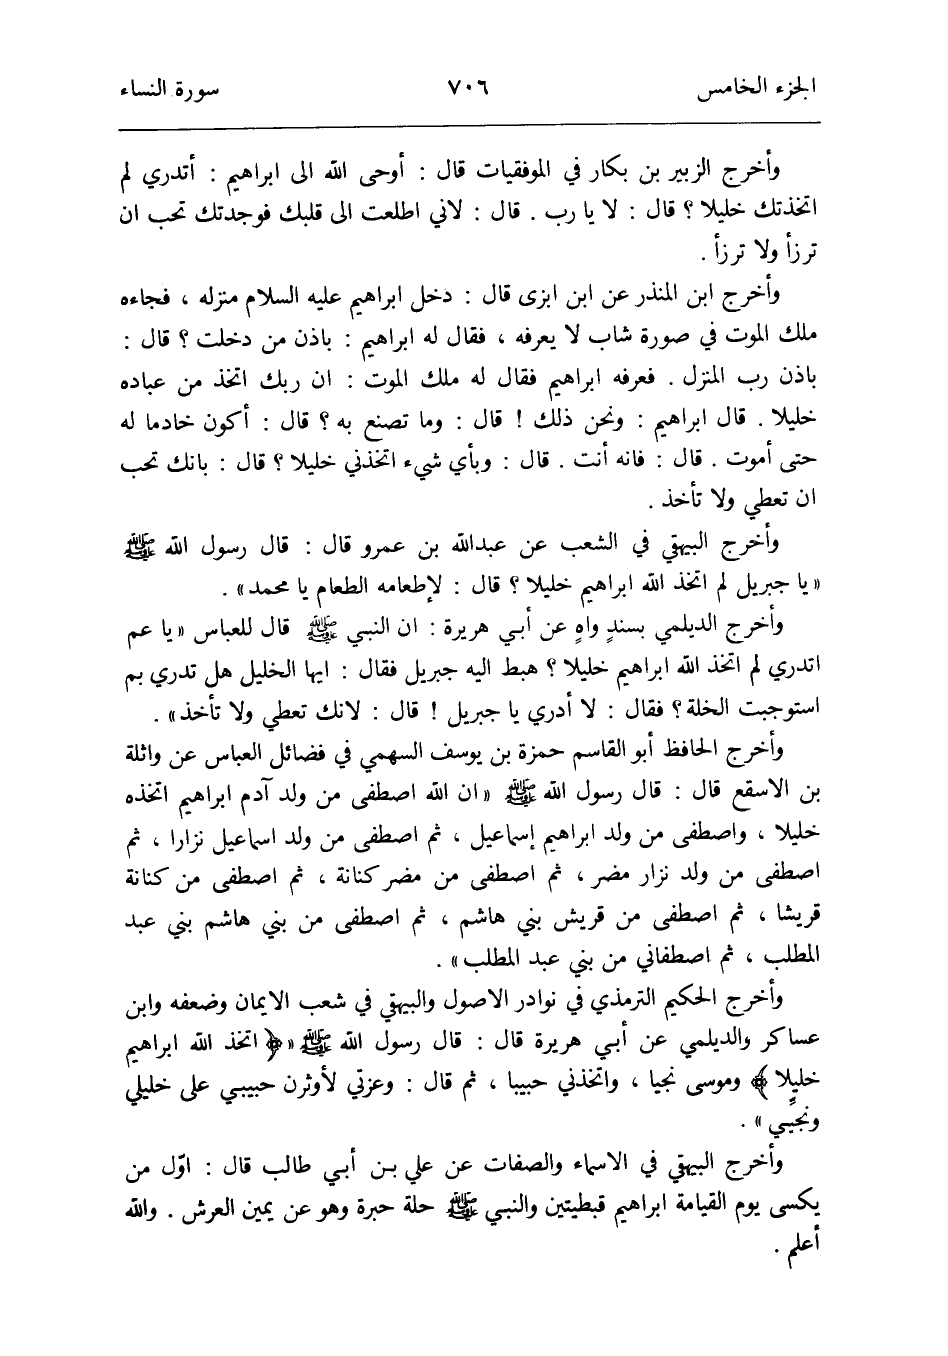 الجزء الخامس ٧٠٦ سورة النساء
وأخرج الزبير بن بكار في الموفقيات قال : أوحى الله الى ابراهيم : أتدري لم
اتخذتك خليلا ؟ قال : لا يا رب . قال : لاني اطلعت الى قلبك فوجدتك تحب ان
ترزأ ولا ترزأ .
وأخرج ابن المنذر عن ابن ابزى قال : دخل ابراهيم عليه السلام منزله ، فجاءه
ملك الموت في صورة شاب لا يعرفه ، فقال له ابراهيم : باذن من دخلت ؟ قال :
باذن رب المنزل . فعرفه ابراهيم فقال له ملك الموت : ان ربك اتخذ من عباده
خليلا . قال ابراهيم : ونحن ذلك ! قال : وما تصنع به ؟ قال : أكون خادما له
حتى أموت . قال : فانه أنت . قال : وبأي شيء اتخذني خليلا ؟ قال : بانك تحب
ان تعطي ولا تأخذ .
وأخرج البيهقي في الشعب عن عبدالله بن عمرو قال : قال رسول الله ﷺ
« يا جبريل لم اتخذ الله ابراهيم خليلا ؟ قال : لإطعامه الطعام يا محمد » .
وأخرج الديلمي بسندٍ واهٍ عن أبي هريرة : ان النبي ﷺ قال للعباس « يا عم
اتدري لم اتخذ الله ابراهيم خليلا ؟ هبط اليه جبريل فقال : ايها الخليل هل تدري بم
استوجبت الخلة ؟ فقال : لا أدري يا جبريل ! قال : لانك تعطي ولا تأخذ » .
وأخرج الحافظ أبو القاسم حمزة بن يوسف السهمي في فضائل العباس عن واثلة
بن الاسقع قال : قال رسول الله ﷺ « ان الله اصطفى من ولد آدم ابراهيم اتخذه
خليلا ، واصطفى من ولد ابراهيم إسماعيل ، ثم اصطفى من ولد اسماعيل نزارا ، ثم
اصطفى من ولد نزار مضر ، ثم اصطفى من مضر كنانة ، ثم اصطفى من كنانة
قريشا ، ثم اصطفى من قريش بني هاشم ، ثم اصطفى من بني هاشم بني عبد
المطلب ، ثم اصطفاني من بني عبد المطلب » .
وأخرج الحكيم الترمذي في نوادر الاصول والبيهقي في شعب الايمان وضعفه وابن
عساكر والديلمي عن أبي هريرة قال : قال رسول الله ﷺ « ﴿ اتخذ الله ابراهيم
خليلا ﴾ وموسى نجيا ، واتخذني حبيبا ، ثم قال : وعزتي لأوثرن حبيبي على خليلي
ونجيي » .
وأخرج البيهقي في الاسماء والصفات عن علي بن أبي طالب قال : اوّل من
يكسى يوم القيامة ابراهيم قبطيتين والنبي ﷺ حلة حبرة وهو عن يمين العرش . والله
أعلم .